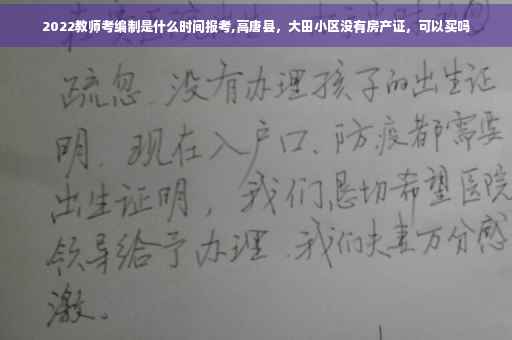 2022教师考编制是什么时间报考,高唐县，大田小区没有房产证，可以买吗
疏忽、没有办理孩子的出生证
明、现在入户口、防疫都需要
出生证明，我们恳切希望医院
领导给予办理、我们夫妻万分感
激。